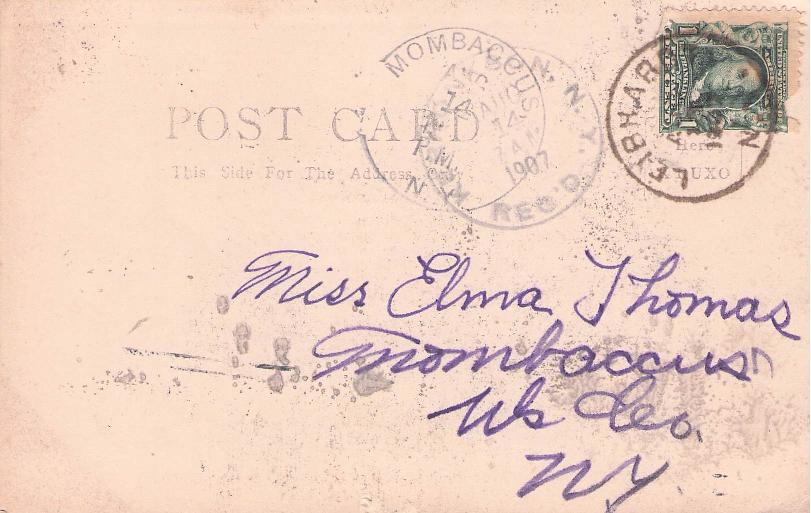 POST CARD
This Side For The Address Only
MOMBACCUS, N.Y.
AUG
14
7 A.M.
1907
REC'D.
N.Y.
LEIBHAR
N
Here
UXO
Miss Elma Thomas
Mombaccus
Uls Co.
NY